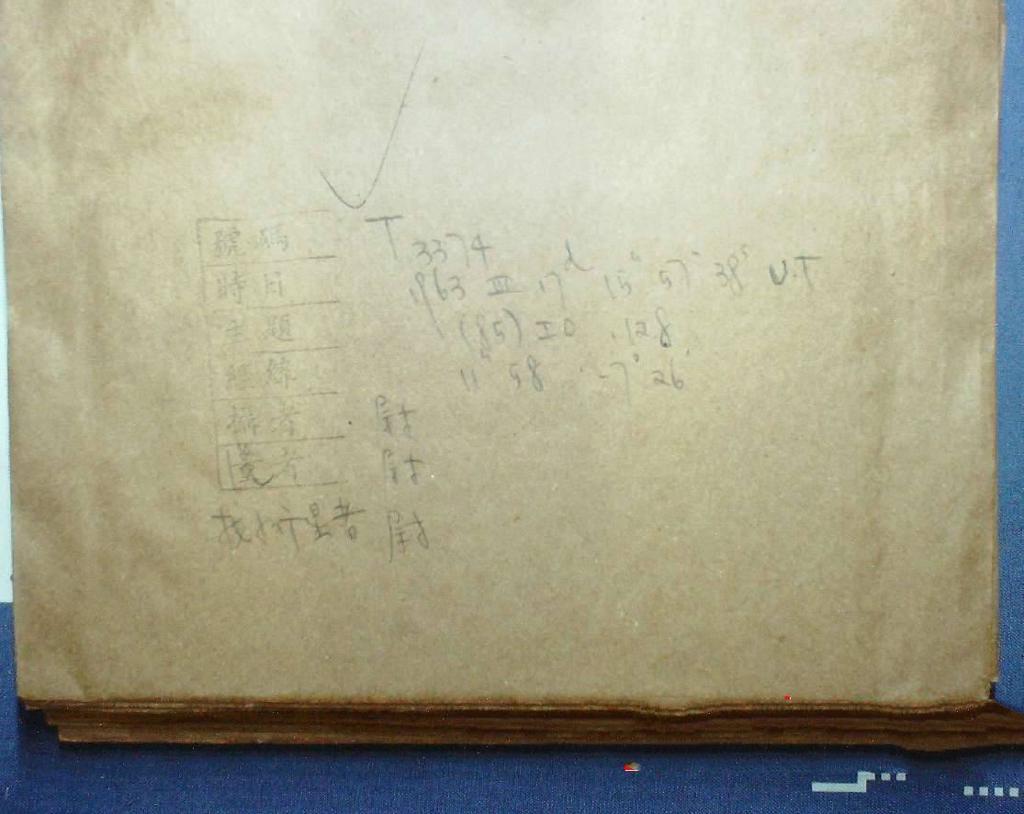 號碼 T 3374
時日 1963 III 17d 15h 57m 38s U.T
主題 (85) IO .128
經緯 11h 58 -7° 26'
攝者 尉
覽者 尉
找小行星者 尉